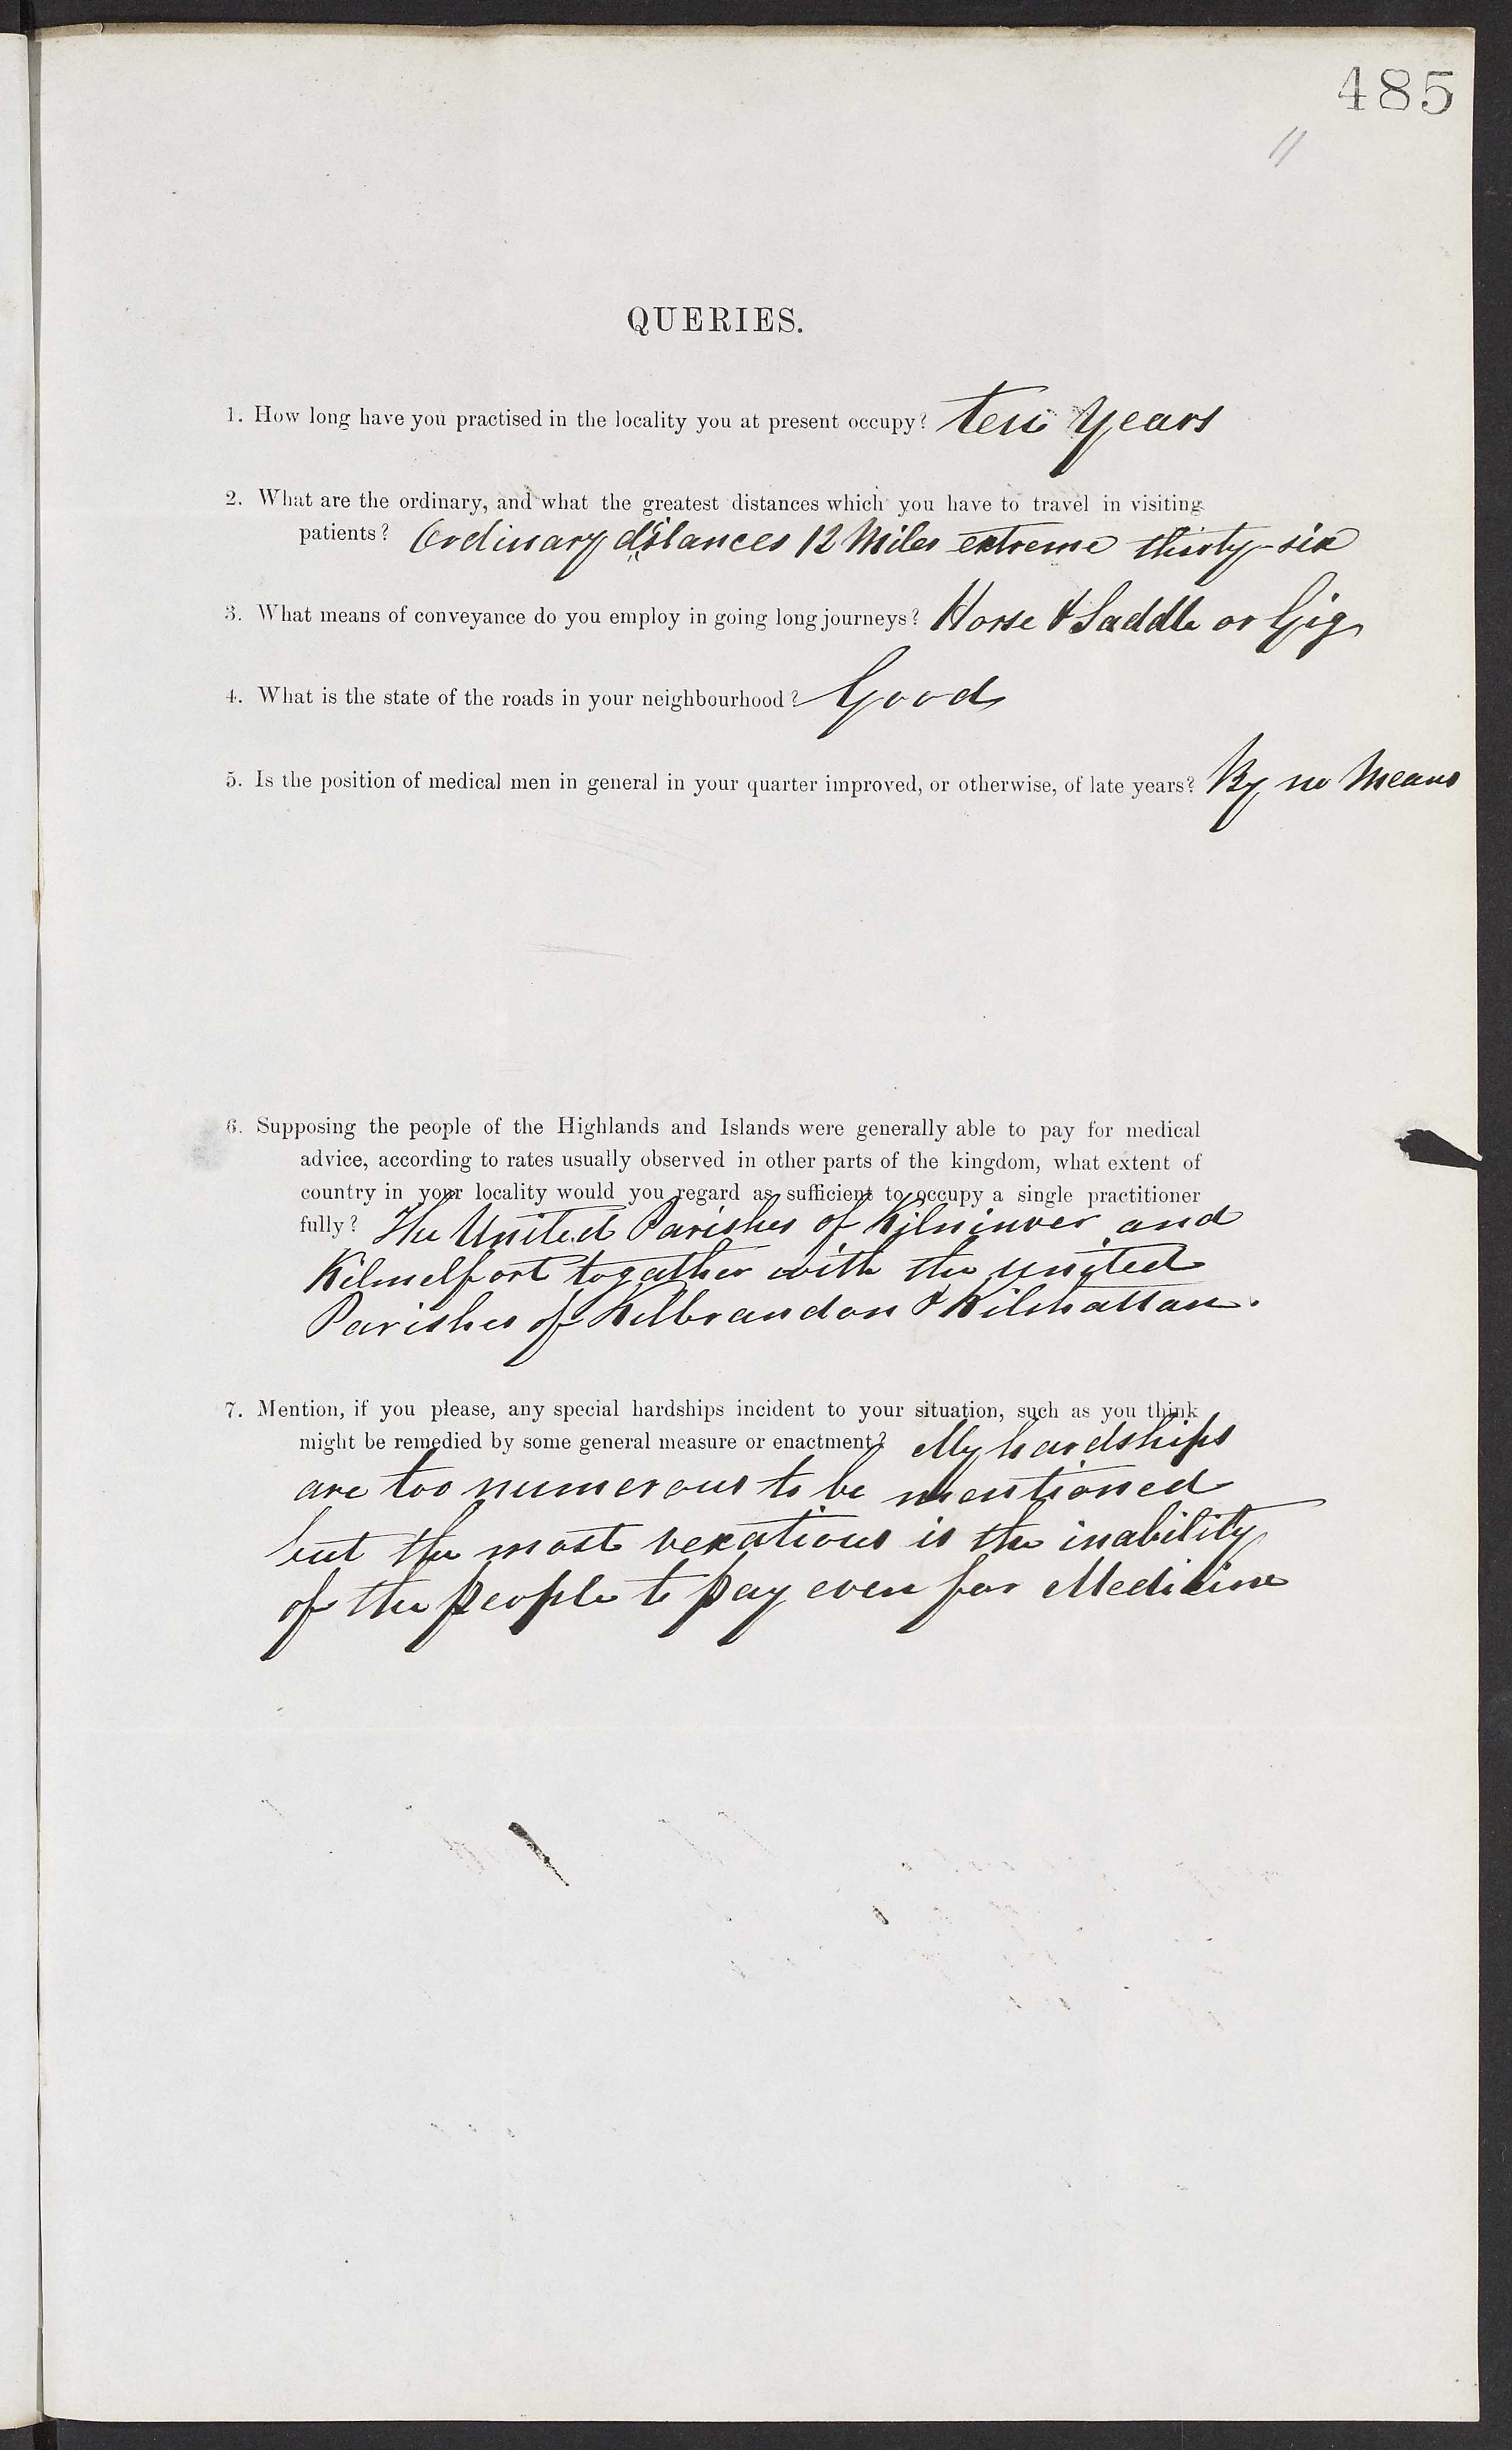 485
11
QUERIES.
1. How long have you practised in the locality you at present occupy? ten years
2. What are the ordinary, and what the greatest distances which you have to travel in visiting
patients? Ordinary distances 12 Miles extreme thirty-six
3. What means of conveyance do you employ in going long journeys? Horse & Saddle or Gig
4. What is the state of the roads in your neighbourhood? Good
5. Is the position of medical men in general in your quarter improved, or otherwise, of late years? By no Means
6. Supposing the people of the Highlands and Islands were generally able to pay for medical
advice, according to rates usually observed in other parts of the kingdom, what extent of
country in your locality would you regard as sufficient to occupy a single practitioner
fully? The United Parishes of Kilninver and
Kilmelfort together with the united
Parishes of Kilbrandon & Kilchattan.
7. Mention, if you please, any special hardships incident to your situation, such as you think
might be remedied by some general measure or enactment? My hardships
are too numerous to be mentioned
but the most vexatious is the inability
of the people to pay even for Medicine